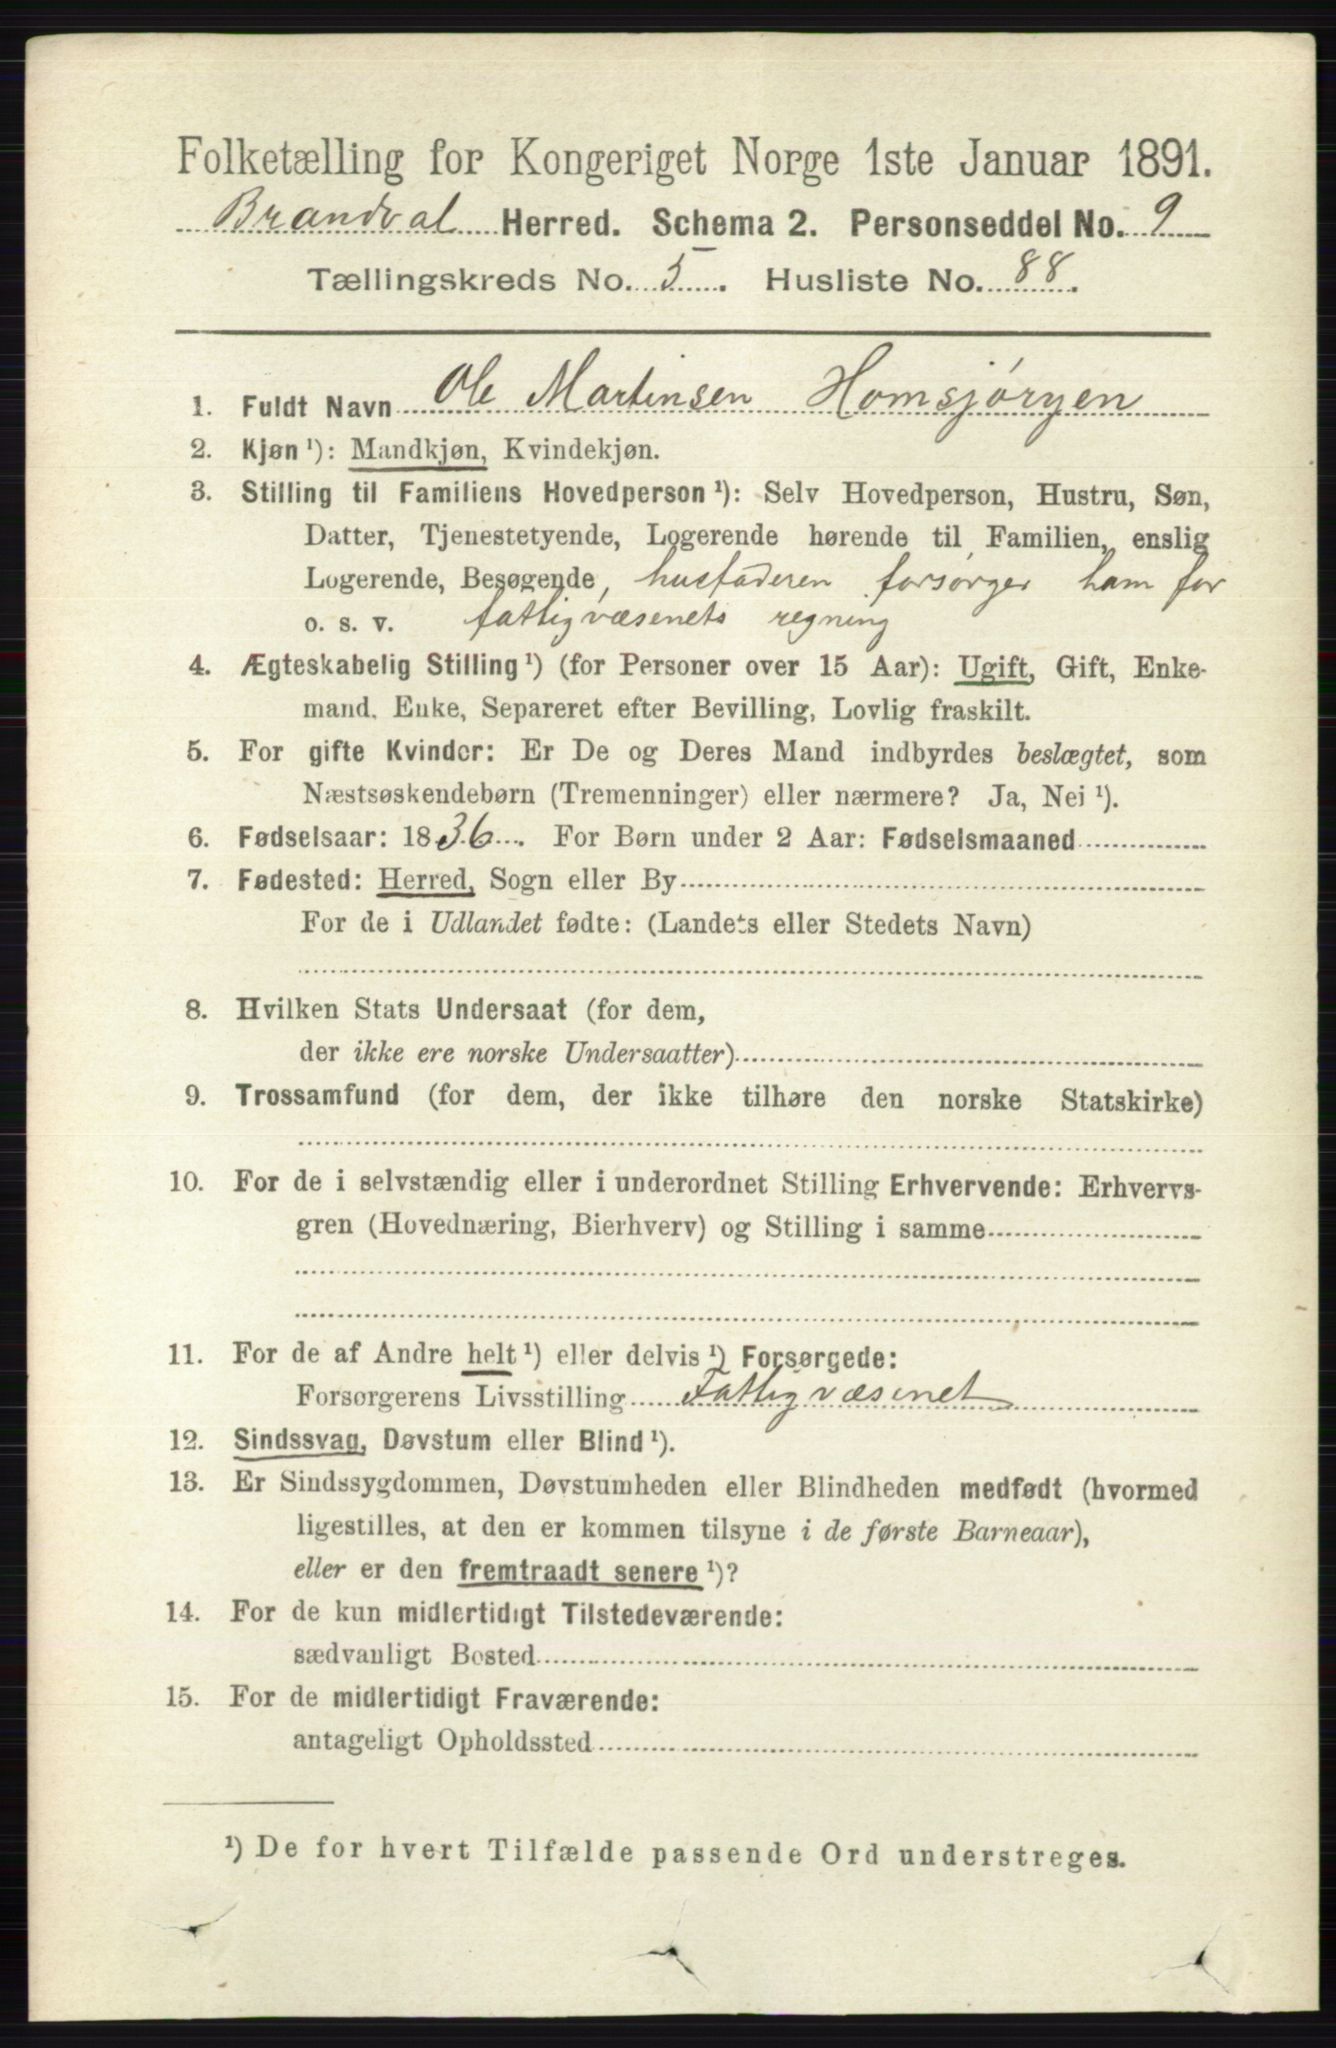 Folketælling for Kongeriget Norge 1ste Januar 1891.
Brandval Herred. Schema 2. Personseddel No. 9
Tællingskreds No. 5. Husliste No. 88.
1. Fuldt Navn Ole Martinsen Homsjøryen
2. Kjøn ¹): Mandkjøn, Kvindekjøn.
3. Stilling til Familiens Hovedperson ¹): Selv Hovedperson, Hustru, Søn,
Datter, Tjenestetyende, Logerende hørende til Familien, enslig
Logerende, Besøgende, husfaderen forsørger ham for
o. s. v. fattigvæsenets regning
4. Ægteskabelig Stilling ¹) (for Personer over 15 Aar): Ugift, Gift, Enke-
mand, Enke, Separeret efter Bevilling, Lovlig fraskilt.
5. For gifte Kvinder: Er De og Deres Mand indbyrdes beslægtet, som
Næstsøskendebørn (Tremenninger) eller nærmere? Ja, Nei ¹).
6. Fødselsaar: 1836. For Børn under 2 Aar: Fødselsmaaned
7. Fødested: Herred, Sogn eller By
For de i Udlandet fødte: (Landets eller Stedets Navn)
8. Hvilken Stats Undersaat (for dem,
der ikke ere norske Undersaatter)
9. Trossamfund (for dem, der ikke tilhøre den norske Statskirke)
10. For de i selvstændig eller i underordnet Stilling Erhvervende: Erhvervs-
gren (Hovednæring, Bierhverv) og Stilling i samme
11. For de af Andre helt ¹) eller delvis ¹) Forsørgede:
Forsørgerens Livsstilling Fattigvæsenet
12. Sindssvag, Døvstum eller Blind ¹).
13. Er Sindssygdommen, Døvstumheden eller Blindheden medfødt (hvormed
ligestilles, at den er kommen tilsyne i de første Barneaar),
eller er den fremtraadt senere ¹)?
14. For de kun midlertidigt Tilstedeværende:
sædvanligt Bosted
15. For de midlertidigt Fraværende:
antageligt Opholdssted
¹) De for hvert Tilfælde passende Ord understreges.